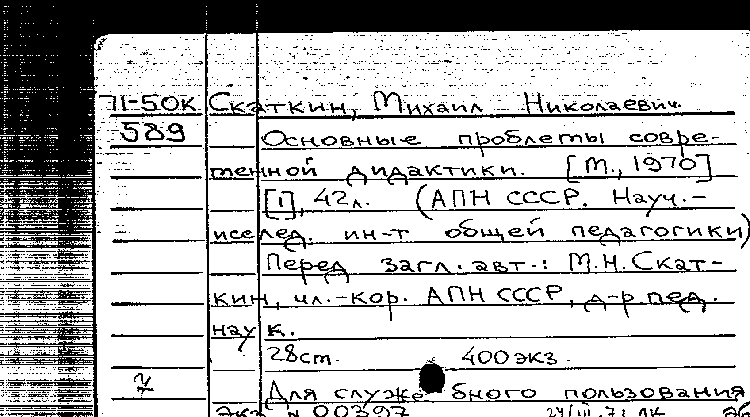 71-50К Скаткин, Михаил Николаевич
589 Основные проблемы совре-
менной дидактики. [М., 1970]
[1], 42л. (АПН СССР. Науч.-
исслед. ин-т общей педагогики)
Перед загл. авт.: М.Н.Скат-
кин, чл.-кор. АПН СССР, д-р пед.
наук.
28см. 400экз.
Для служебного пользования
Экз. N 00397